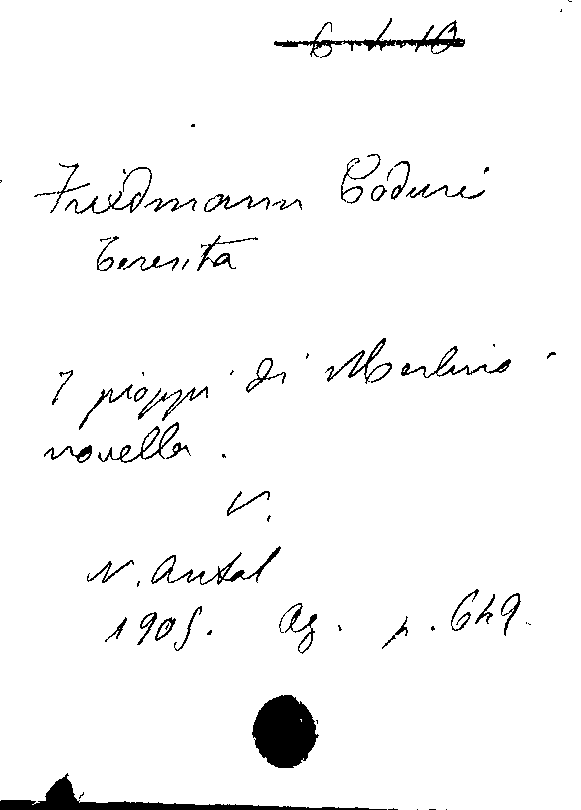 6.1.10
Friedmann Coduri
Teresita
I pioppi di Merlino -
novella.
V.
N. Antol
1905. Ag. p. 649.